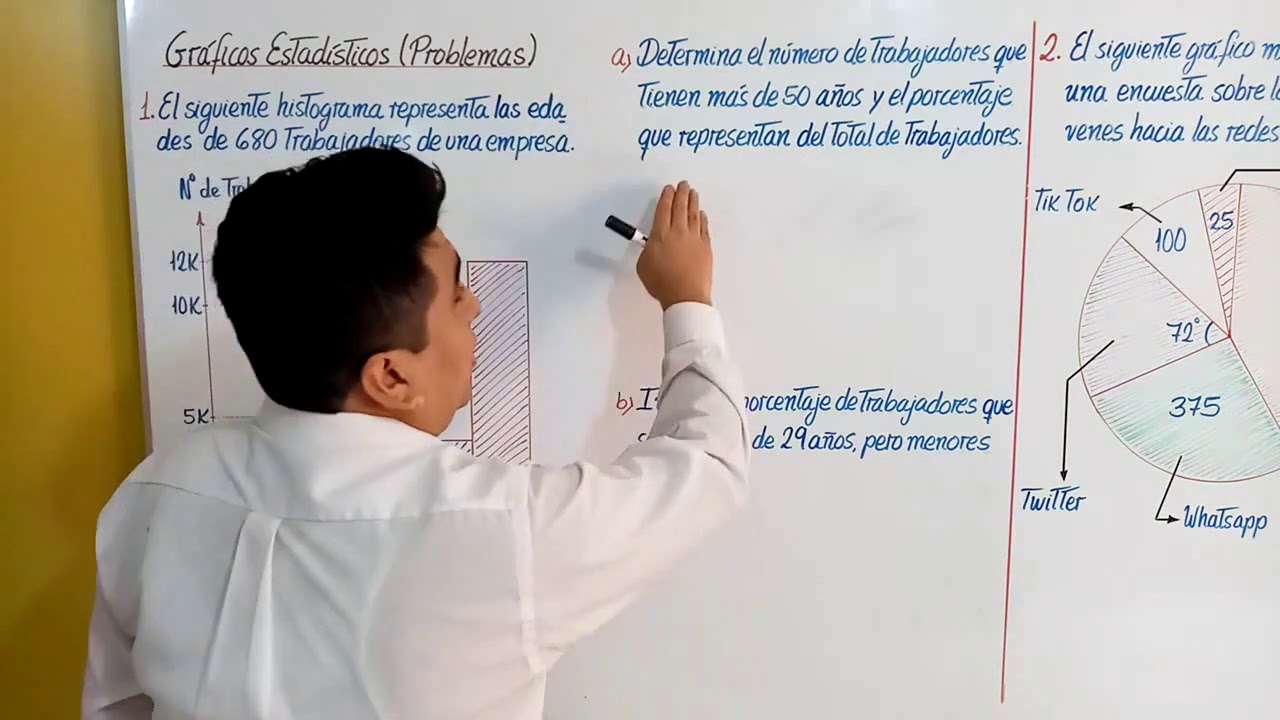 Gráficos Estadísticos (Problemas)
1. El siguiente histograma representa las eda
des de 680 Trabajadores de una empresa.
N° de
12K
10K
5K
a) Determina el número de Trabajadores que
Tienen más de 50 años y el porcentaje
que representan del Total de Trabajadores.
b)
porcentaje de Trabajadores que
de 29 años, pero menores
2. El siguiente gráfico
una encuesta sobre
venes hacia las redes
Tik Tok
100
25
72°
375
Twitter
Whatsapp